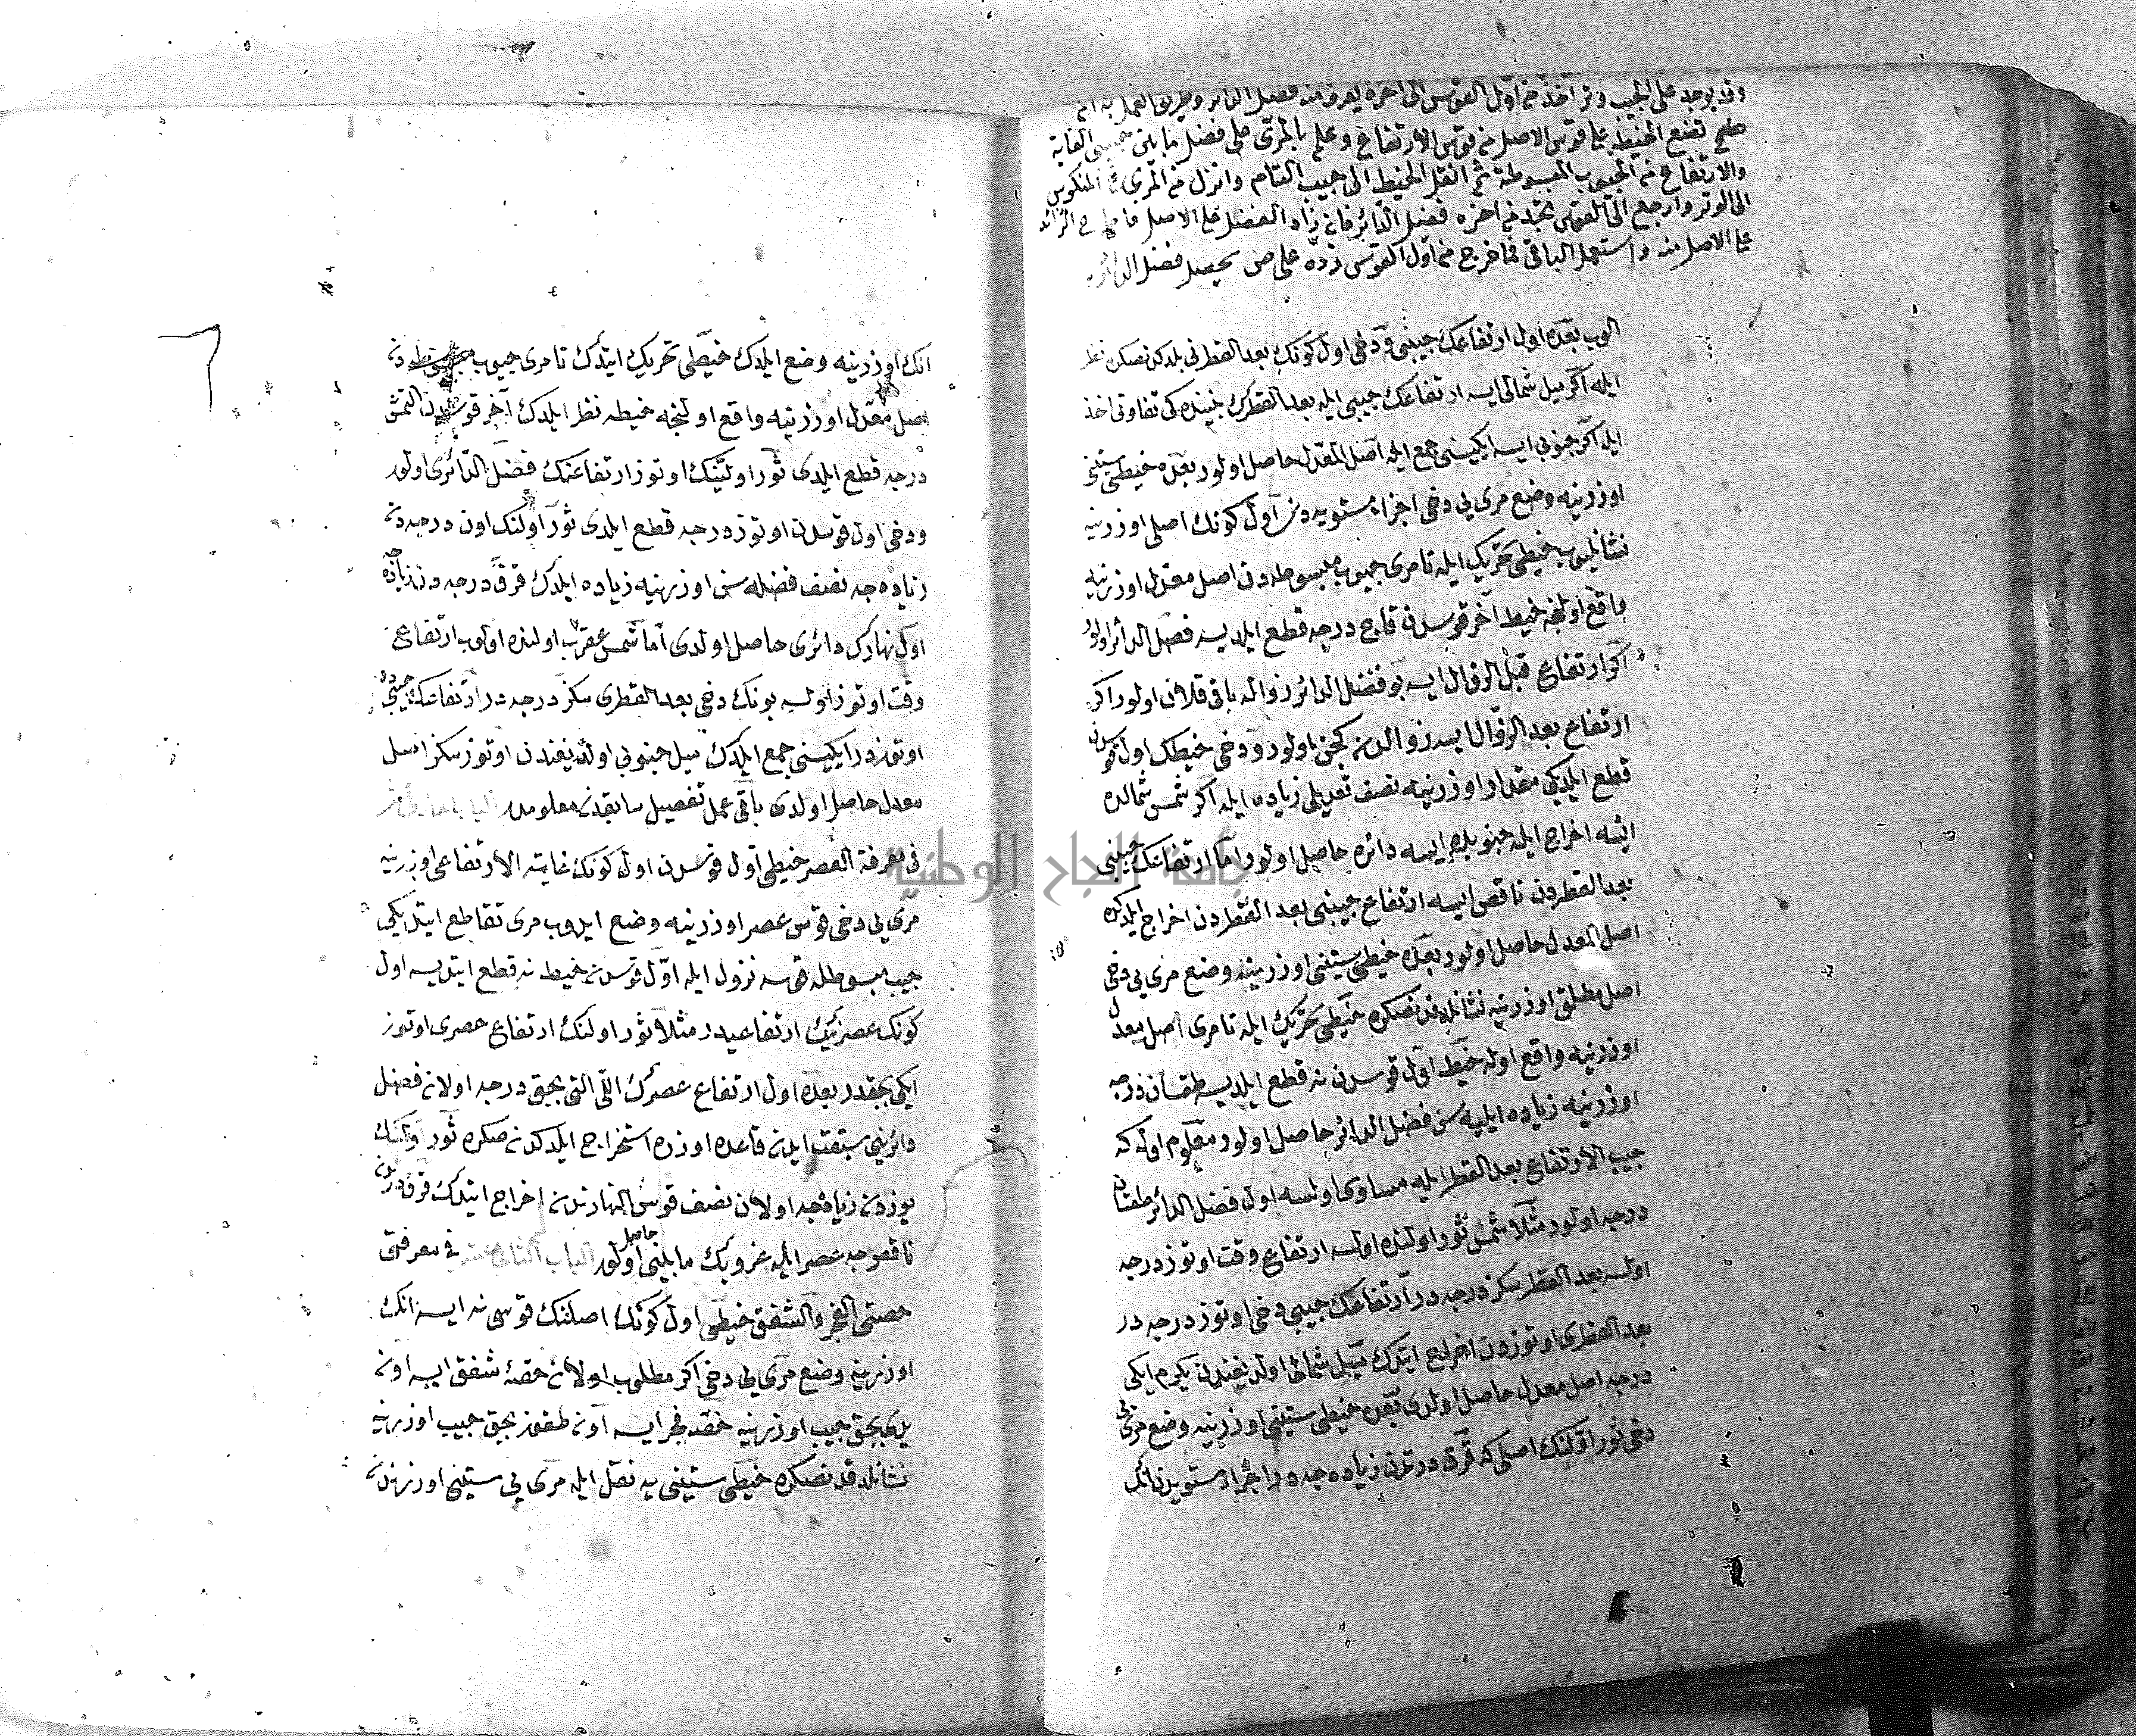 وقد يوجد على الجيب وتر اخذ من اول القوس الى اخره يعرف منه فضل الدائر وطريق العمل به ان
تضع الخيط على قوس الاصل من قوس الارتفاع وعلم بالمرى على فضل ما بين جيبى الغاية
والارتفاع من الجيوب المبسوطة ثم انقل الخيط الى جيب التمام وانزل من المرى فى المنكوس
الى الوتر وارجع الى القوس تجد من اخره فضل الدائر فان زاد الفضل على الاصل فاطرح الزائد
على الاصل منه واستعمل الباقى فما خرج من اول القوس زده على ص يحصل فضل الدائر
الوب بعده اول ارتفاعك جيبنى ودخى اول كونك بعد القطرنى بلدكدنصكره نظر
ايله اكر ميل شمالى ايسه ارتفاعك جيبى ايله بعد القطرك بيننده كى تفاوتى اخذ
ايله اكر جنوبى ايسه ايكيسنى جمع ايله اصل المعدل حاصل اولور بعده خيطى ستينى
اوزرينه وضع مرى يى دخى اجزاء مستويه دن اول كونك اصلى اوزرينه
نشانليوب خيطى تحريك ايله تا مرى جيوب مبسوطه دن اصل معدل اوزرينه
واقع اولنجه خيط آخر قوسدن قاچ درجه قطع ايلديسه فضل الدائر اولور
اكر ارتفاع قبل الزوال ايسه بو فضل الدائر زواله باقى قلان اولور اكر
ارتفاع بعد الزوال ايسه زوالدن كچن اولور ودخى خيطك اول قوسدن
قطع ايلديكى مقدار اوزرينه نصف تعديلى زياده ايله اكر شمس شمالده
ايسه اخراج ايله جنوبده ايسه دائره حاصل اولور واما ارتفاعك جيبى
بعد القطردن ناقص ايسه ارتفاع جيبنى بعد القطردن اخراج ايلدكده
اصل المعدل حاصل اولور بعده خيطى ستينى اوزرينه وضع مرى يى دخى
اصل مطلق اوزرينه نشانلدقدنصكره خيطى تحريك ايله تا مرى اصل معدل
اوزرينه واقع اوله خيط اول قوسدن نه قطع ايلديسه طقسان درجه
اوزرينه زياده ايليه سن فضل الدائر حاصل اولور معلوم اوله كه
جيب الارتفاع بعد القطر ايله مساوى اولسه اول فضل الدائر طقسان
درجه اولور مثلا شمس ثور اولنده اولسه ارتفاع وقت اوتوز درجه
اولسه بعد القطر سكز درجه در ارتفاعك جيبى دخى اوتوز درجه در
بعد القطرى اوتوزدن اخراج ايتدك ميل شمالى اولديغندن يكرم ايكى
درجه اصل معدل حاصل اولدى بعده خيطى ستينى اوزرينه وضع مرى يى
دخى ثور اولنك اصلى كه قرق درتدن زياده جه در اجزاء مستويدن انك
انك اوزرينه وضع ايلدك خيطى تحريك ايتدك تا مرى جيوب دن
اصل معدل اوزرينه واقع اولنجه خيطه نظر ايلدك آخر قوسدن التمش
درجه قطع ايلدى ثور اولنك اوتوز ارتفاعنك فضل الدائرى اولور
ودخى اول قوسدن اوتوز درجه قطع ايلدى ثور اولنك اون درجه دن
زياده جه نصف فضله سن اوزرينه زياده ايلدك قرق درجه دن زياده جه
اول نهارك دائرى حاصل اولدى اما شمس عقرب اولنده اولوب ارتفاع
وقت اوتوز اولسه بونك دخى بعد القطرى سكز درجه در ارتفاعك جيبى ده
اوتوزدر ايكيسنى جمع ايلدك ميل جنوبى اولديغندن اوتوز سكز اصل
معدل حاصل اولدى باقى عمل تفصيل سابقدن معلومدر
فى معرفة العصر خيطى اول قوسدن اول كونك غاية الارتفاعى اوزرينه
مرى يى دخى قوس عصر اوزرينه وضع ايدوب مرى تقاطع ايتديكى
جيب مبسوطله قوسه نزول ايله اول قوسدن خيط نه قطع ايتديسه اول
كونك عصرينك ارتفاعيدر مثلا ثور اولنك ارتفاع عصرى اوتوز
ايكى بچقدر بعده اول ارتفاع عصرك اللى التى بچق درجه اولان فضل
دائرينى سبقت ايدن قاعده اوزره استخراج ايلدكدنصكره ثور اولنك
يوزدن زياده جه اولان نصف قوس النهارندن اخراج ايتدك قرق درتدن
ناقصجه عصر ايله غروبك مابينى حاصل اولور الباب الثانى عشر فى معرفتى
حصتى الفجر والشفق خيطى اول كونك اصلنك قوسى نه ايسه انك
اوزرينه وضع مرى يى دخى اكر مطلوب اولان حصۀ شفق ايسه اون
يدى بچق جيب اوزرينه حصه فجر ايسه اون طقوز بچق جيب اوزرينه
نشانلدقدنصكره خيطى ستينى يه نقل ايله مرى يى ستينى اوزرندن
جامعة النجاح الوطنية